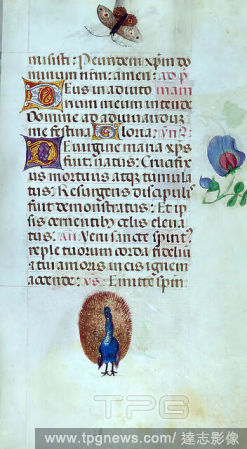 misisti: Per eundem xp̄m do
minum nr̄m: amen: ad p̄
Deus in adiuto
meum intende
Domine ad adiuvandum
me festina Gloria: yn̄?
De virgine maria xp̄s
fuit natus: Crucifix
us mortuus atqz tumula
tus: Resurgens discipulis
fuit demonstratus: Et ip
sis cernentibz celis eleva
tus: an̄ Veni sancte spirit?
reple tuorum corda fidelium
& tui amoris in eis ignem
accende: vs̄ Emitte spiri
TPG
www.tpgnews.com/ 達志影像